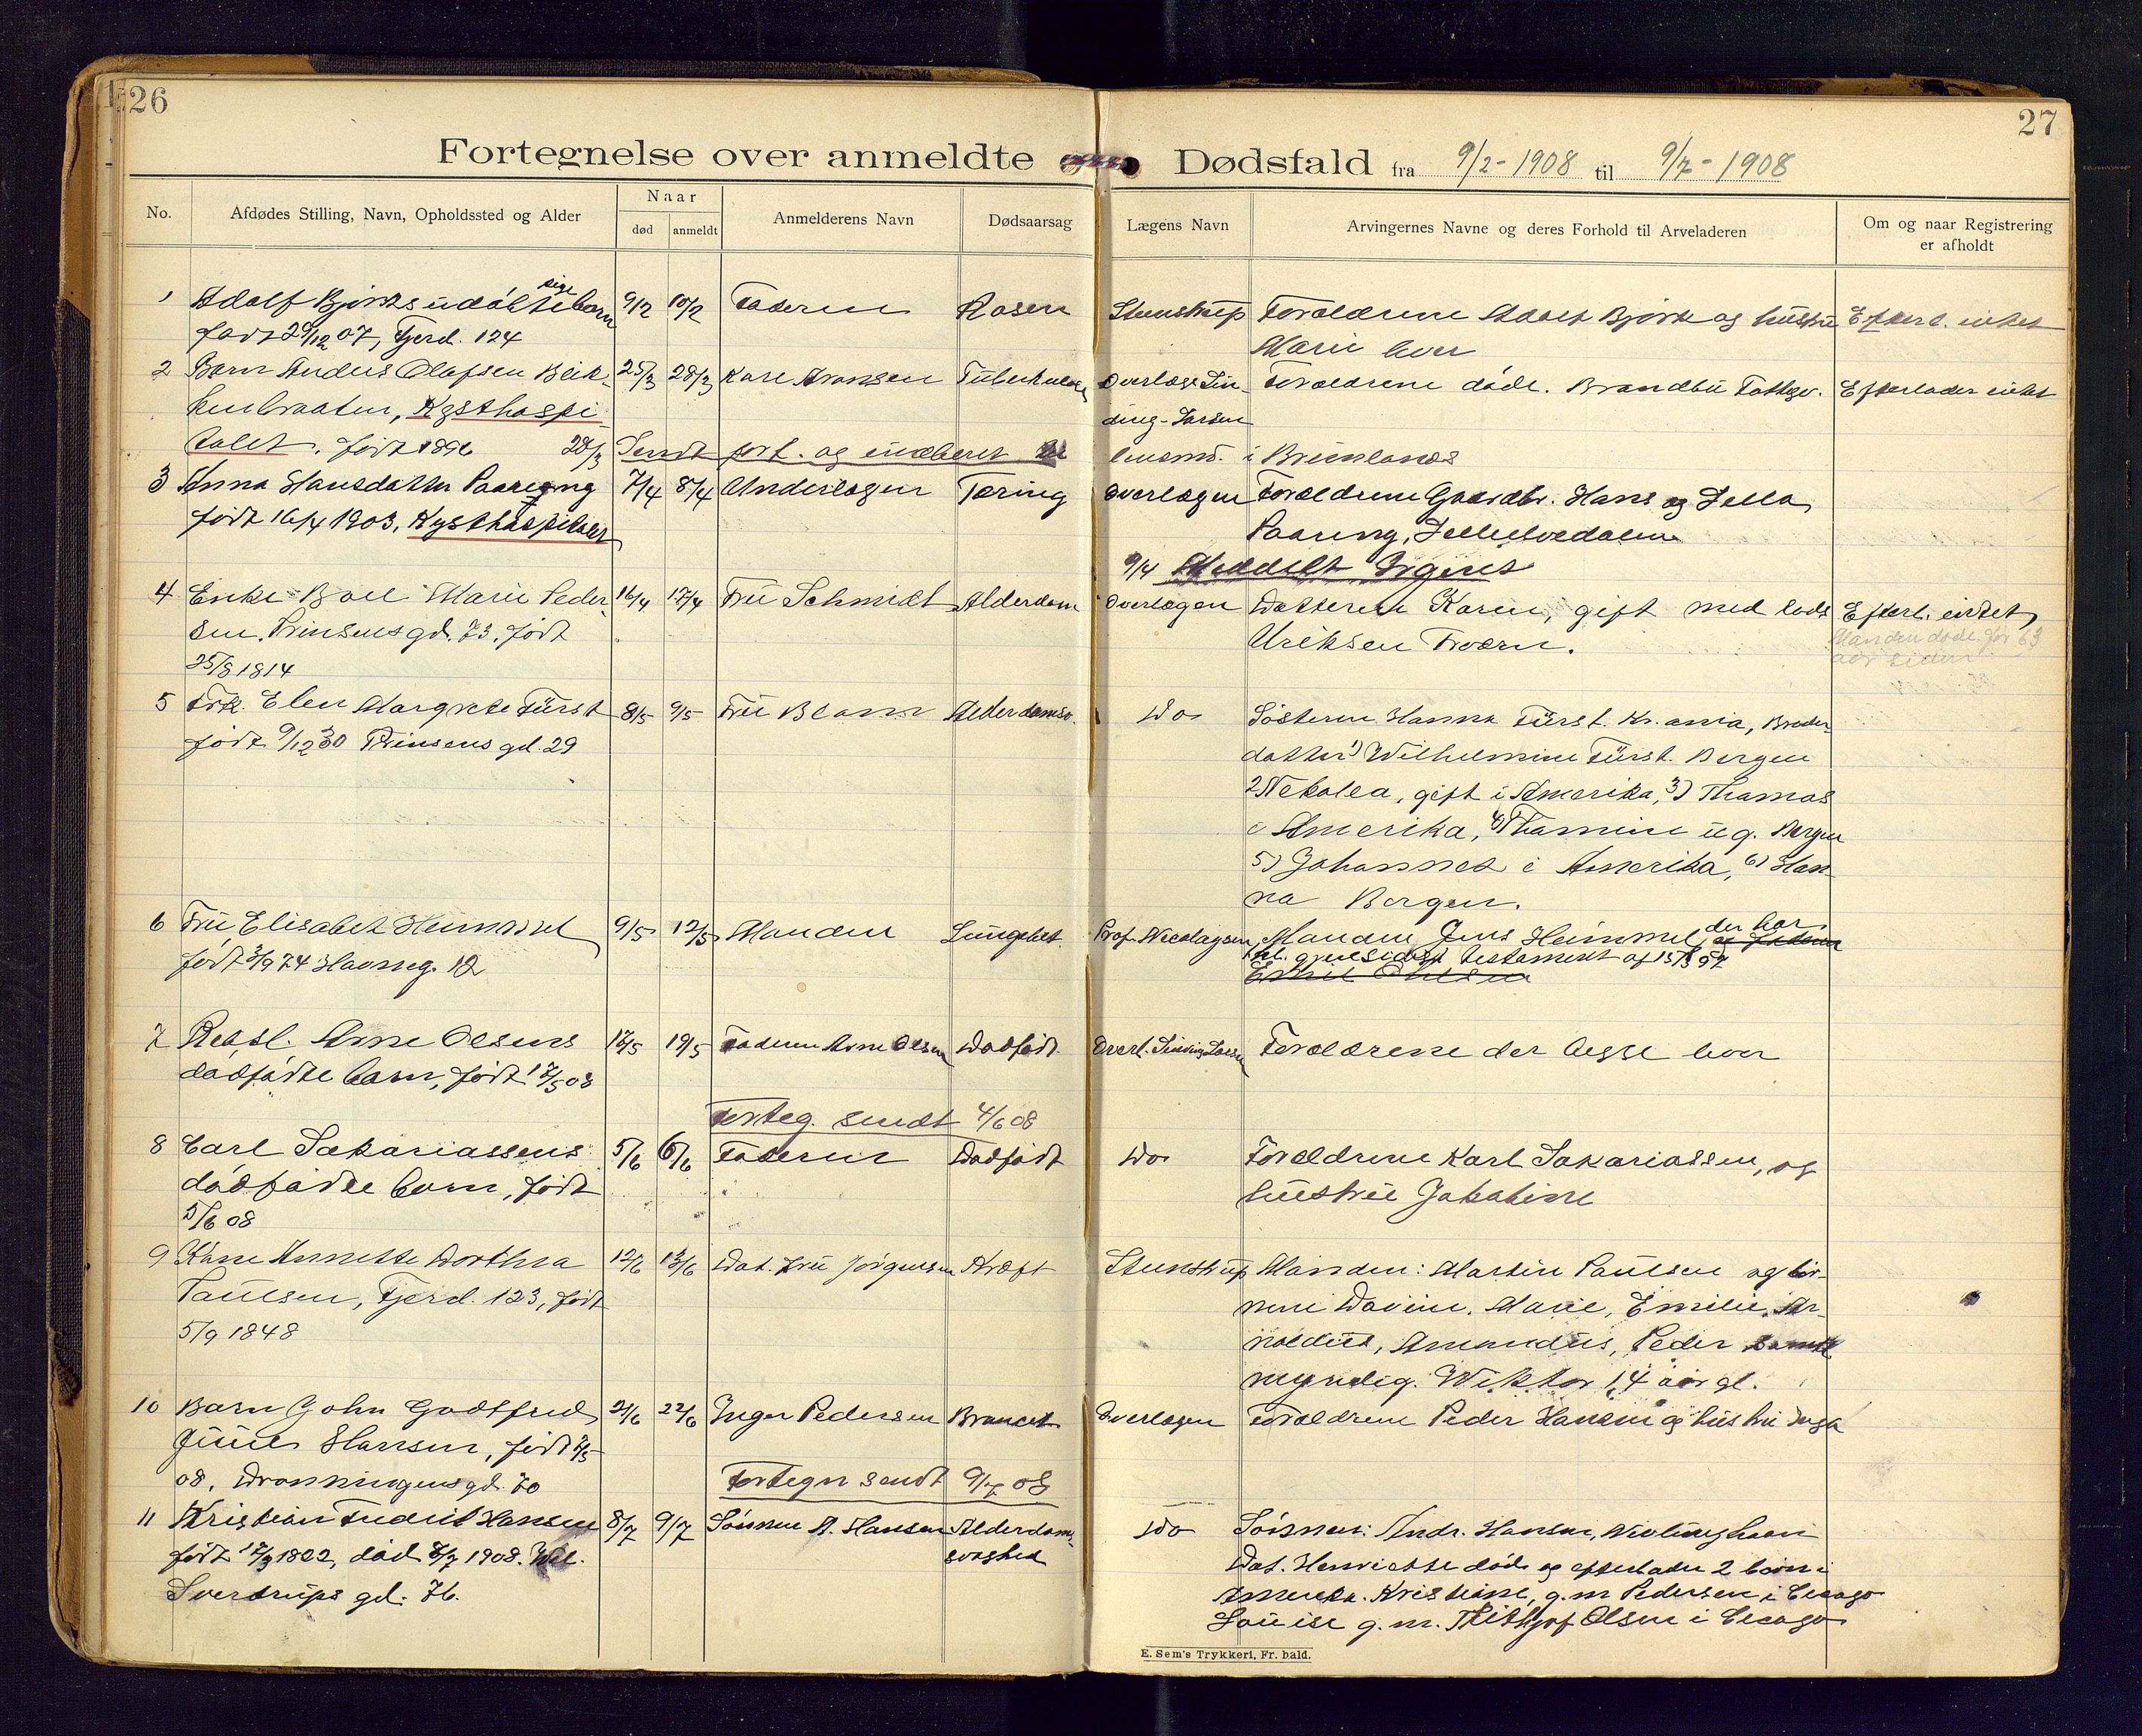 26
27
Fortegnelse over anmeldte Dødsfald fra 9/2-1908 til 9/7-1908
No.
Afdødes Stilling, Navn, Opholdssted og Alder
Naar
død
anmeldt
Anmelderens Navn
Dødsaarsag
Lægens Navn
Arvingernes Navne og deres Forhold til Arveladeren
Om og naar Registrering
er afholdt
1 Adolf Bjørks udøbte pige barn 9/2 10/2 Faderen Rosen Steenstrup Forældrene Adolf Bjørk og hustru Efterl. intet
født 29/12 07, Fjerd. 124 Marie lever
2 Barn Anders Olafsen Blik- 25/3 28/3 Karl Aronsen Tuberkulose Overlæge Sin- Forældrene døde. Brandbu Fattigv. Efterlader intet
kenbraaten, Kysthospi- ding-Larsen
talet. født 1896 28/3 Sendt fort. og indberet. til lensmd. i Brunlanes
3 Anna Hansdatter Paaregng 7/4 8/4 Underlægen Tæring Overlægen Forældrene Gaardbr. Hans og Zella
født 16/4 1903, Kysthospitalet Paaring,
9/4 Meddelt Brigens
4 Enke Boel Marie Peder- 16/4 17/4 Fru Schmidt Alderdom Overlægen Datteren Karen, gift med lods Efterl. intet,
sen. Prinsensgd. 73. født Ulriksen Tværn. Manden døde for 63
25/8 1814 aar siden
5 Frk. Elen Margrete Fürst 8/5 9/5 Fru Blom Alderdomsv. Do Søsteren Hanna Fürst. Kr.ania, Broder-
født 9/12 30 Prinsens gd. 29 datter 1) Wilhelmine Fürst. Bergen
2) Nekolea, gift i Amerika, 3) Thomas
i Amerika, 4) Thomine ug. Bergen
5) Johannes i Amerika, 6) Han-
na Bergen.
6 Fru Elisabet Heimmel 9/5 12/5 Manden Lungebet. Prof. Nicolaysen Manden Jens Heimmel, der har
født 3/9 74 Havneg. 12 kgl. gjensidigt testament af 15/3 97
7 Rebsl. Arne Olsens 17/5 19/5 Faderen Arne Olsen Dødfødt Overl. Sinding Larsen Forældrene der begge lever
dødfødte barn, født 17/5 08
Forteg. sendt 4/6 08
8 Carl Sakariassens 5/6 6/6 Faderen Dødfødt Do Forældrene Karl Sakariassen, og
dødfødte barn, født hustru Jakobine
5/6 08
9 Kone Annette Dorthea 12/6 13/6 Dat. Fru Jørgensen Kræft Steenstrup Manden: Martin Paulsen og bør-
Paulsen, Fjerd. 123, født nene Davine, Marie, Emilie, Ar-
5/9 1848 noldus, Amandus, Peder samtl.
myndig. Wiktor 14 aar gl.
10 Barn John Godtfred 21/6 22/6 Inger Pedersen Broncit Overlægen Forældrene Peder Hansen og hustru Inga
Juul Hansen, født 2/5
08, Dronningensgd. 70 Fortegn sendt 9/7 08
11 Kristian Fredrik Hansen 8/7 9/7 Sønnen A. Hansen Alderdoms- Do Sønnen: Andr. Hansen,
født 17/9 1822, død 8/7 1908. svaghed Dat. Henriette død og efterlader 2 børn i
Sverdrups gd. 76. Amerika. Kristine, g.m. Pedersen i Cicago
Louise g. m. Fritjof Olsen i Cicago
E. Sem's Trykkeri, Fr. hald.